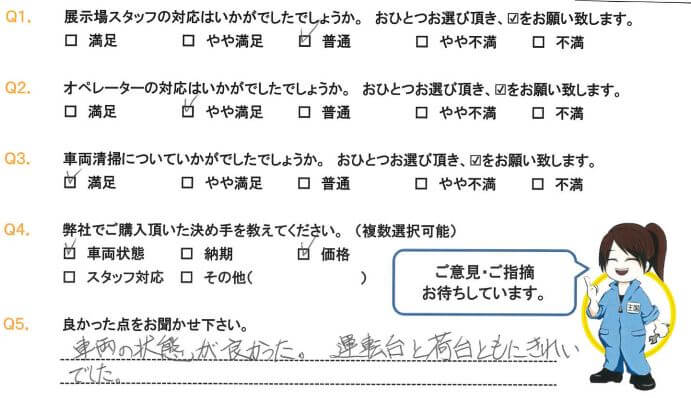 Q1. 展示場スタッフの対応はいかがでしたでしょうか。 おひとつお選び頂き、☑をお願い致します。
☐ 満足 ☐ やや満足 ☑ 普通 ☐ やや不満 ☐ 不満
Q2. オペレーターの対応はいかがでしたでしょうか。 おひとつお選び頂き、☑をお願い致します。
☐ 満足 ☑ やや満足 ☐ 普通 ☐ やや不満 ☐ 不満
Q3. 車両清掃についていかがでしたでしょうか。 おひとつお選び頂き、☑をお願い致します。
☑ 満足 ☐ やや満足 ☐ 普通 ☐ やや不満 ☐ 不満
Q4. 弊社でご購入頂いた決め手を教えてください。(複数選択可能)
☑ 車両状態 ☐ 納期 ☑ 価格
☐ スタッフ対応 ☐ その他( )
ご意見・ご指摘
お待ちしています。
Q5. 良かった点をお聞かせ下さい。
車両の状態が良かった。 運転台と荷台ともにきれい
でした。